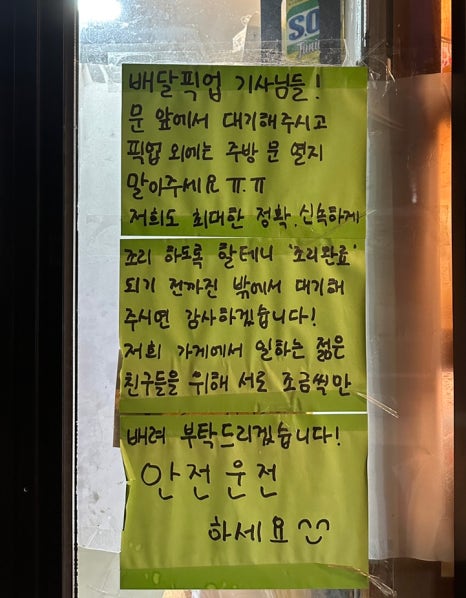 SC
배달픽업 기사님들!
문 앞에서 대기해주시고
픽업 외에는 주방 문 열지
말아주세요 ㅠ.ㅠ
저희도 최대한 정확.신속하게
조리 하도록 할테니 '조리완료'
되기 전까진 밖에서 대기해
주시면 감사하겠습니다!
저희 가게에서 일하는 젊은
친구들을 위해 서로 조금씩만
배려 부탁드리겠습니다!
안전운전
하세요 ^^